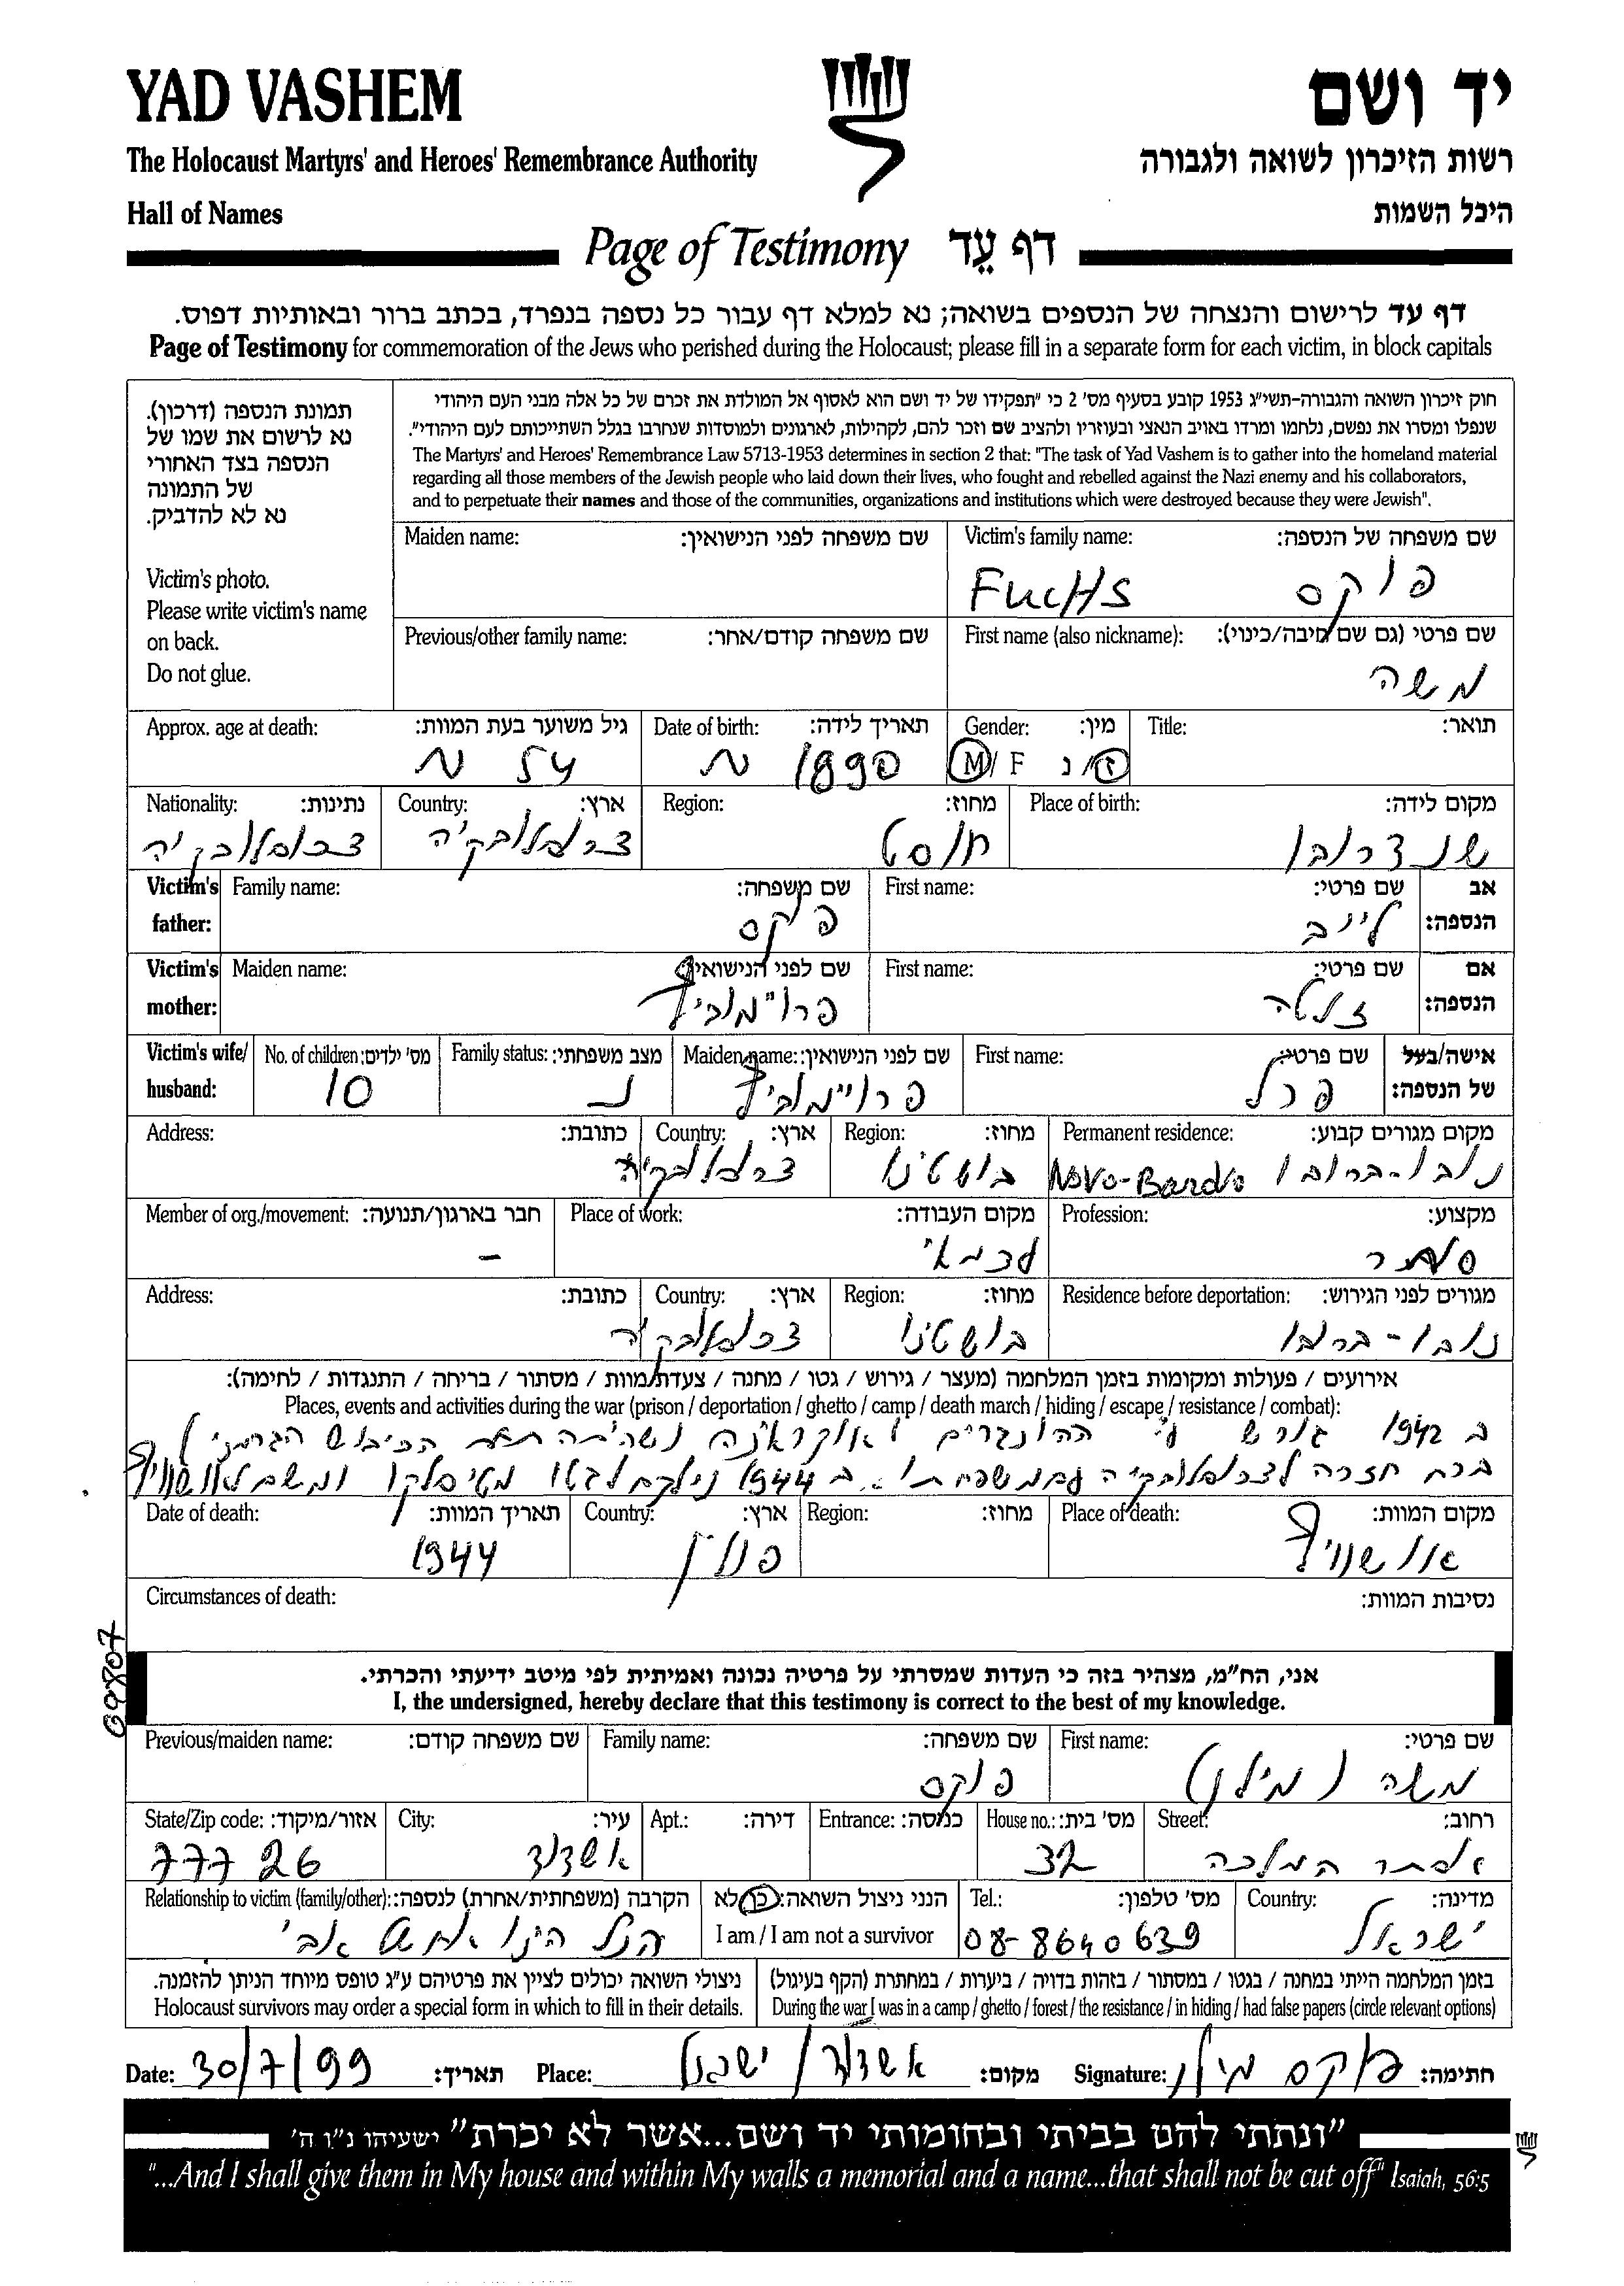 YAD VASHEM
יד ושם
The Holocaust Martyrs' and Heroes' Remembrance Authority
רשות הזיכרון לשואה ולגבורה
Hall of Names
היכל השמות
Page of Testimony דף עֵד
דף עד לרישום והנצחה של הנספים בשואה; נא למלא דף עבור כל נספה בנפרד, בכתב ברור ובאותיות דפוס.
Page of Testimony for commemoration of the Jews who perished during the Holocaust; please fill in a separate form for each victim, in block capitals
תמונת הנספה (דרכון).
נא לרשום את שמו של
הנספה בצד האחורי
של התמונה
נא לא להדביק.
Victim's photo.
Please write victim's name
on back.
Do not glue.
חוק זיכרון השואה והגבורה-תשי"ג 1953 קובע בסעיף מס' 2 כי "תפקידו של יד ושם הוא לאסוף אל המולדת את זכרם של כל אלה מבני העם היהודי
שנפלו ומסרו את נפשם, נלחמו ומרדו באויב הנאצי ובעוזריו ולהציב שם וזכר להם, לקהילות, לארגונים ולמוסדות שנחרבו בגלל השתייכותם לעם היהודי".
The Martyrs' and Heroes' Remembrance Law 5713-1953 determines in section 2 that: "The task of Yad Vashem is to gather into the homeland material
regarding all those members of the Jewish people who laid down their lives, who fought and rebelled against the Nazi enemy and his collaborators,
and to perpetuate their names and those of the communities, organizations and institutions which were destroyed because they were Jewish".
Maiden name: שם משפחה לפני הנישואין:
Victim's family name: שם משפחה של הנספה:
FUCHS פוקס
Previous/other family name: שם משפחה קודם/אחר:
First name (also nickname): שם פרטי (גם שם חיבה/כינוי):
משה
Approx. age at death: גיל משוער בעת המוות:
54
Date of birth: תאריך לידה:
1890
Gender: מין:
M/ F ז/נ
Title: תואר:
Nationality: נתינות:
צכוסלובקיה
Country: ארץ:
צכוסלובקיה
Region: מחוז:
חוסט
Place of birth: מקום לידה:
Victim's father: Family name: שם משפחה:
פוקס
First name: שם פרטי:
לייב
אב הנספה:
Victim's mother: Maiden name: שם לפני הנישואין:
פרוימוביץ
First name: שם פרטי:
אם הנספה:
Victim's wife/ husband:
No. of children: מס' ילדים:
10
Family status: מצב משפחתי:
נ
Maiden name: שם לפני הנישואין:
פרוימוביץ
First name: שם פרטי:
פרל
אישה/בעל של הנספה:
Address: כתובת:
Country: ארץ:
צכוסלובקיה
Region: מחוז:
בושטינו
Permanent residence: מקום מגורים קבוע:
Novo-Bardvo נובו-ברובו
Member of org./movement: חבר בארגון/תנועה:
–
Place of work: מקום העבודה:
עצמאי
Profession: מקצוע:
סוחר
Address: כתובת:
Country: ארץ:
צכוסלובקיה
Region: מחוז:
בושטינו
Residence before deportation: מגורים לפני הגירוש:
נובו-ברובו
אירועים / פעולות ומקומות בזמן המלחמה (מעצר / גירוש / גטו / מחנה / צעדת/מוות / מסתור / בריחה / התנגדות / לחימה):
Places, events and activities during the war (prison / deportation / ghetto / camp / death march / hiding / escape / resistance / combat):
ב 1942 גורש ע"י ההונגרים לאוקראינה שהיתה תחת הכיבוש הגרמני
ברח חזרה לצכוסלובקיה עם משפחתו. ב 1944 נילקח לגטו מטיסלקו ומשם לאושוויץ
Date of death: תאריך המוות:
1944
Country: ארץ:
פולין
Region: מחוז:
Place of death: מקום המוות:
אושוויץ
Circumstances of death: נסיבות המוות:
אני, הח"מ, מצהיר בזה כי העדות שמסרתי על פרטיה נכונה ואמיתית לפי מיטב ידיעתי והכרתי.
I, the undersigned, hereby declare that this testimony is correct to the best of my knowledge.
Previous/maiden name: שם משפחה קודם:
Family name: שם משפחה:
פוקס
First name: שם פרטי:
משה (מילן)
State/Zip code: אזור/מיקוד:
777 26
City: עיר:
אשדוד
Apt.: דירה:
Entrance: כניסה:
House no.: מס' בית:
32
Street: רחוב:
אסתר המלכה
Relationship to victim (family/other): הקרבה (משפחתית/אחרת) לנספה:
הנל הינו אח של אבי
הנני ניצול השואה: כן/לא
I am / I am not a survivor
Tel.: מס' טלפון:
08-8640639
Country: מדינה:
ישראל
ניצולי השואה יכולים לציין את פרטיהם ע"ג טופס מיוחד הניתן להזמנה.
Holocaust survivors may order a special form in which to fill in their details.
בזמן המלחמה הייתי במחנה / בגטו / במסתור / בזהות בדויה / ביערות / במחתרת (הקף בעיגול)
During the war I was in a camp / ghetto / forest / the resistance / in hiding / had false papers (circle relevant options)
Date: 30/7/99 תאריך:
Place: אשדוד / ישראל מקום:
Signature: פוקס מילן חתימה:
"ונתתי להם בביתי ובחומותי יד ושם...אשר לא יכרת" ישעיהו נ"ו ה'
"...And I shall give them in My house and within My walls a memorial and a name...that shall not be cut off" Isaiah, 56:5